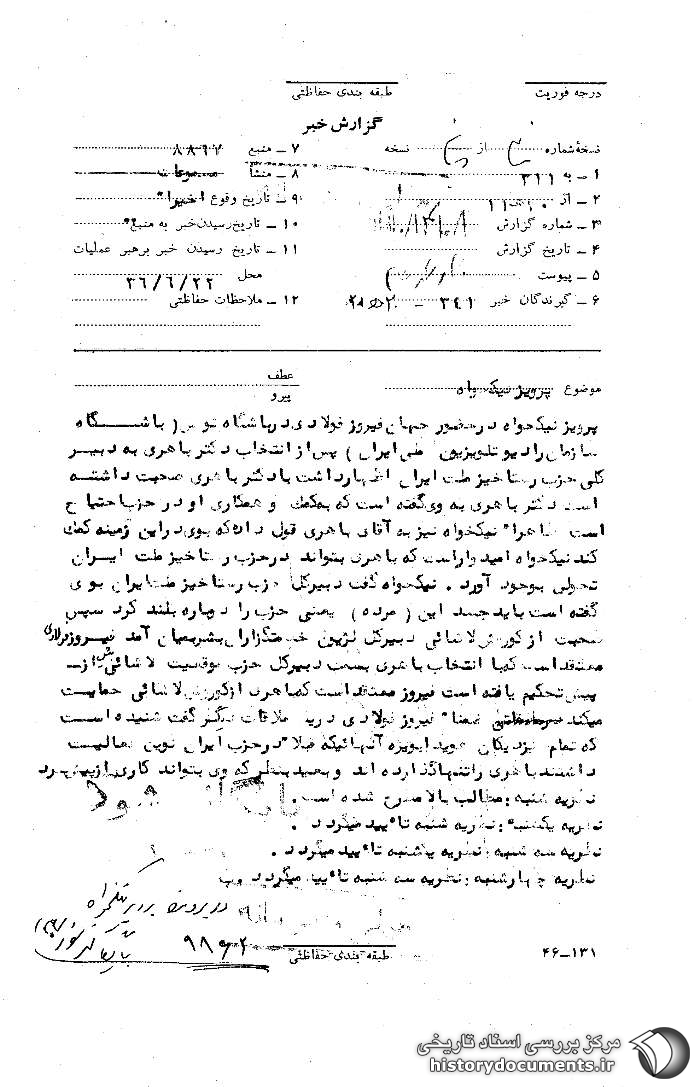 درجه فوریت
طبقه بندی حفاظتی
گزارش خبر
نسخه شماره از نسخه
۱ ــ به ۳۲۱
۲ ــ از
۳ ــ شماره گزارش
۴ ــ تاریخ گزارش
۵ ــ پیوست
۶ ــ گیرندگان خبر ۳۴۱ ــ
۷ ــ منبع ۸۸۹۲
۸ ــ منشأ مسموعات
۹ ــ تاریخ وقوع اخیرا"
۱۰ ــ تاریخ رسیدن خبر به منبع
۱۱ ــ تاریخ رسیدن خبر برهبر عملیات
محل ۳۶/۶/۲۲
۱۲ ــ ملاحظات حفاظتی
موضوع پرویز نیکخواه
عطف
پیرو
پرویز نیکخواه درحضور جهان فیروز فولادی درباشگاه توس ( باشگاه
سازمان رادیو تلویزیون ملی ایران ) پس از انتخاب دکتر باهری به دبیر
کلی حزب رستاخیز ملت ایران اظهارداشت بادکتر باهری صحبت داشته
است دکتر باهری به وی گفته است که بکمک و همکاری او در حزب احتیاج
است ظاهرا" نیکخواه نیز به آقای باهری قول داده که بوی دراین زمینه کمک
کند نیکخواه امیدواراست که باهری بتواند درحزب رستاخیز ملت ایران
تحولی بوجود آورد . نیکخواه گفت دبیرکل حزب رستاخیز ملت ایران بوی
گفته است باید جسد این ( مرده ) یعنی حزب را دوباره بلند کرد سپس
صحبت از کورش لاشائی دبیرکل لژیون خدمتگزاران بشر بمیان آمد فیروز فولادی
معتقداست که با انتخاب باهری بسمت دبیرکل حزب موقعیت لاشائی بیش از
پیش تحکیم یافته است فیروز معتقد است که باهری ازکورش لاشائی حمایت
میکند ضمنا" فیروز فولادی دریک ملاقات دیگر گفت شنیده است
که تمام نزدیکان هویدا بویژه آنهائیکه قبلا" درحزب ایران نوین فعالیت
داشتند باهری راتنهاگذارده اند و بعید بنظر که وی بتواند کاری ازپیش برد
نظریه شنبه : مطالب بالا مطرح شده است .
نظریه یکشنبه : نظریه شنبه تائید میگردد .
نظریه سه شنبه : نظریه یکشنبه تائید میگردد .
نظریه چهارشنبه : نظریه سه شنبه تائید میگردد
بایگانی شود
در پرونده پرویز نیکخواه
بایگانی شود
۹۸۶۰۲
طبقه بندی حفاظتی
۴۶ــ۱۳۱
مرکز بررسی اسناد تاریخی
historydocuments.ir